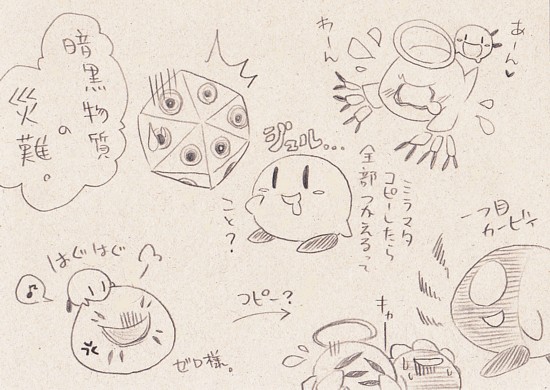 暗黒物質
の
災難。
あーん♥
わーん
ジュル...
ミラマタ
コピーしたら
全部つかえるって
こと？
一つ目
カービィ
はぐはぐ
♪
ゼロ様。
コピー？
キャ